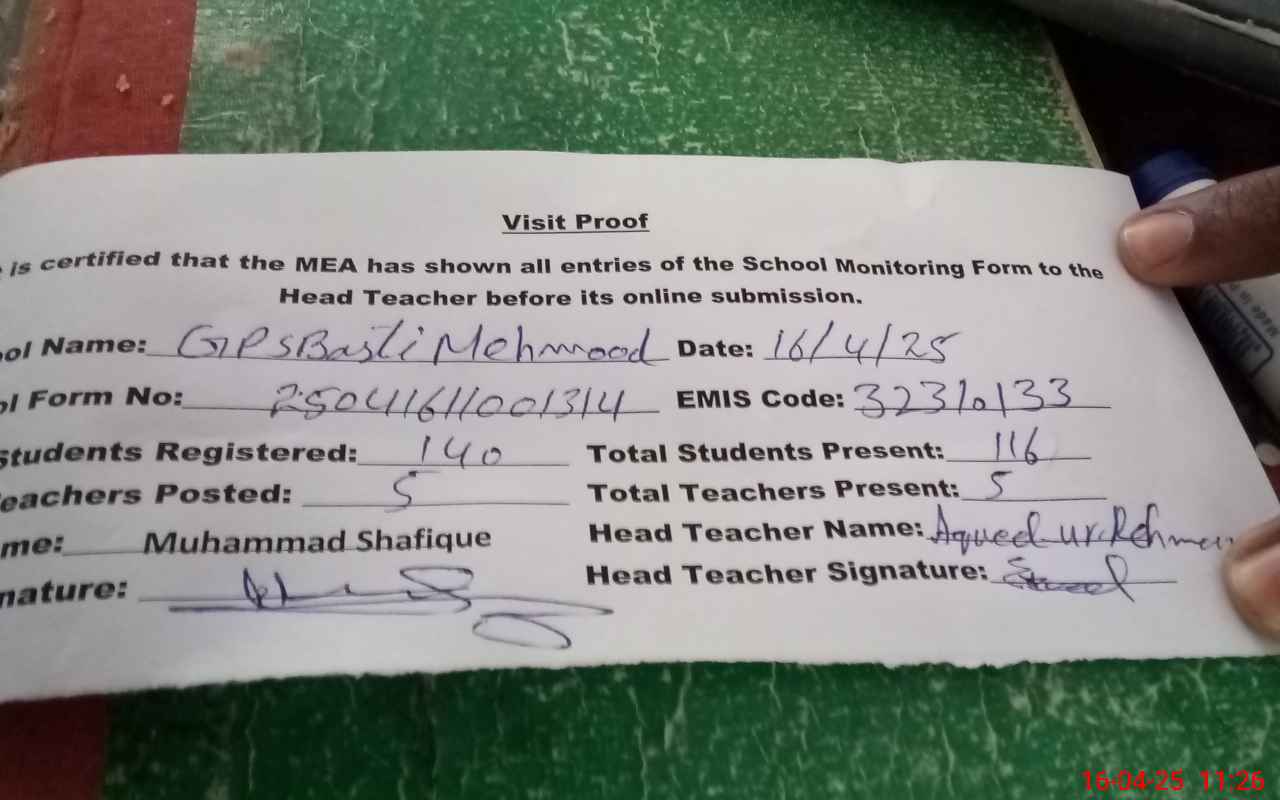 Visit Proof
is certified that the MEA has shown all entries of the School Monitoring Form to the
Head Teacher before its online submission.
ol Name: GPS Basti Mehmood Date: 16/4/25
ol Form No: 250411611001314 EMIS Code: 32310133
Students Registered: 140 Total Students Present: 116
eachers Posted: 5 Total Teachers Present: 5
me: Muhammad Shafique Head Teacher Name: Aqeel ur Rehman
nature: Head Teacher Signature:
16-04-25 11:26